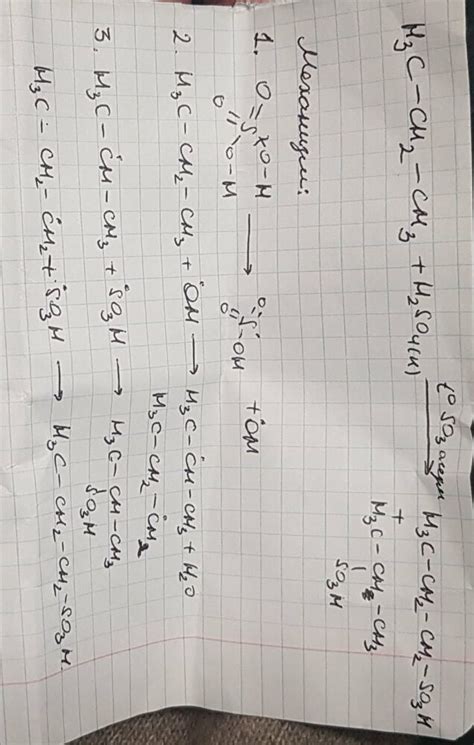 H₃C–CH₂–CH₃ + H₂SO₄(к) t° SO₃ → H₃C–CH₂–CH₂–SO₃H
+
H₃C–CH–CH₃
SO₃H
Механизм:
1. O=S×O–H → O=S–OH + ȮH
O O–H O
2. H₃C–CH₂–CH₃ + ȮH → H₃C–ĊH–CH₃ + H₂O
H₃C–CH₂–ĊH₂
3. H₃C–ĊH–CH₃ + ṠO₃H → H₃C–CH–CH₃
SO₃H
H₃C–CH₂–ĊH₂ + ṠO₃H → H₃C–CH₂–CH₂–SO₃H